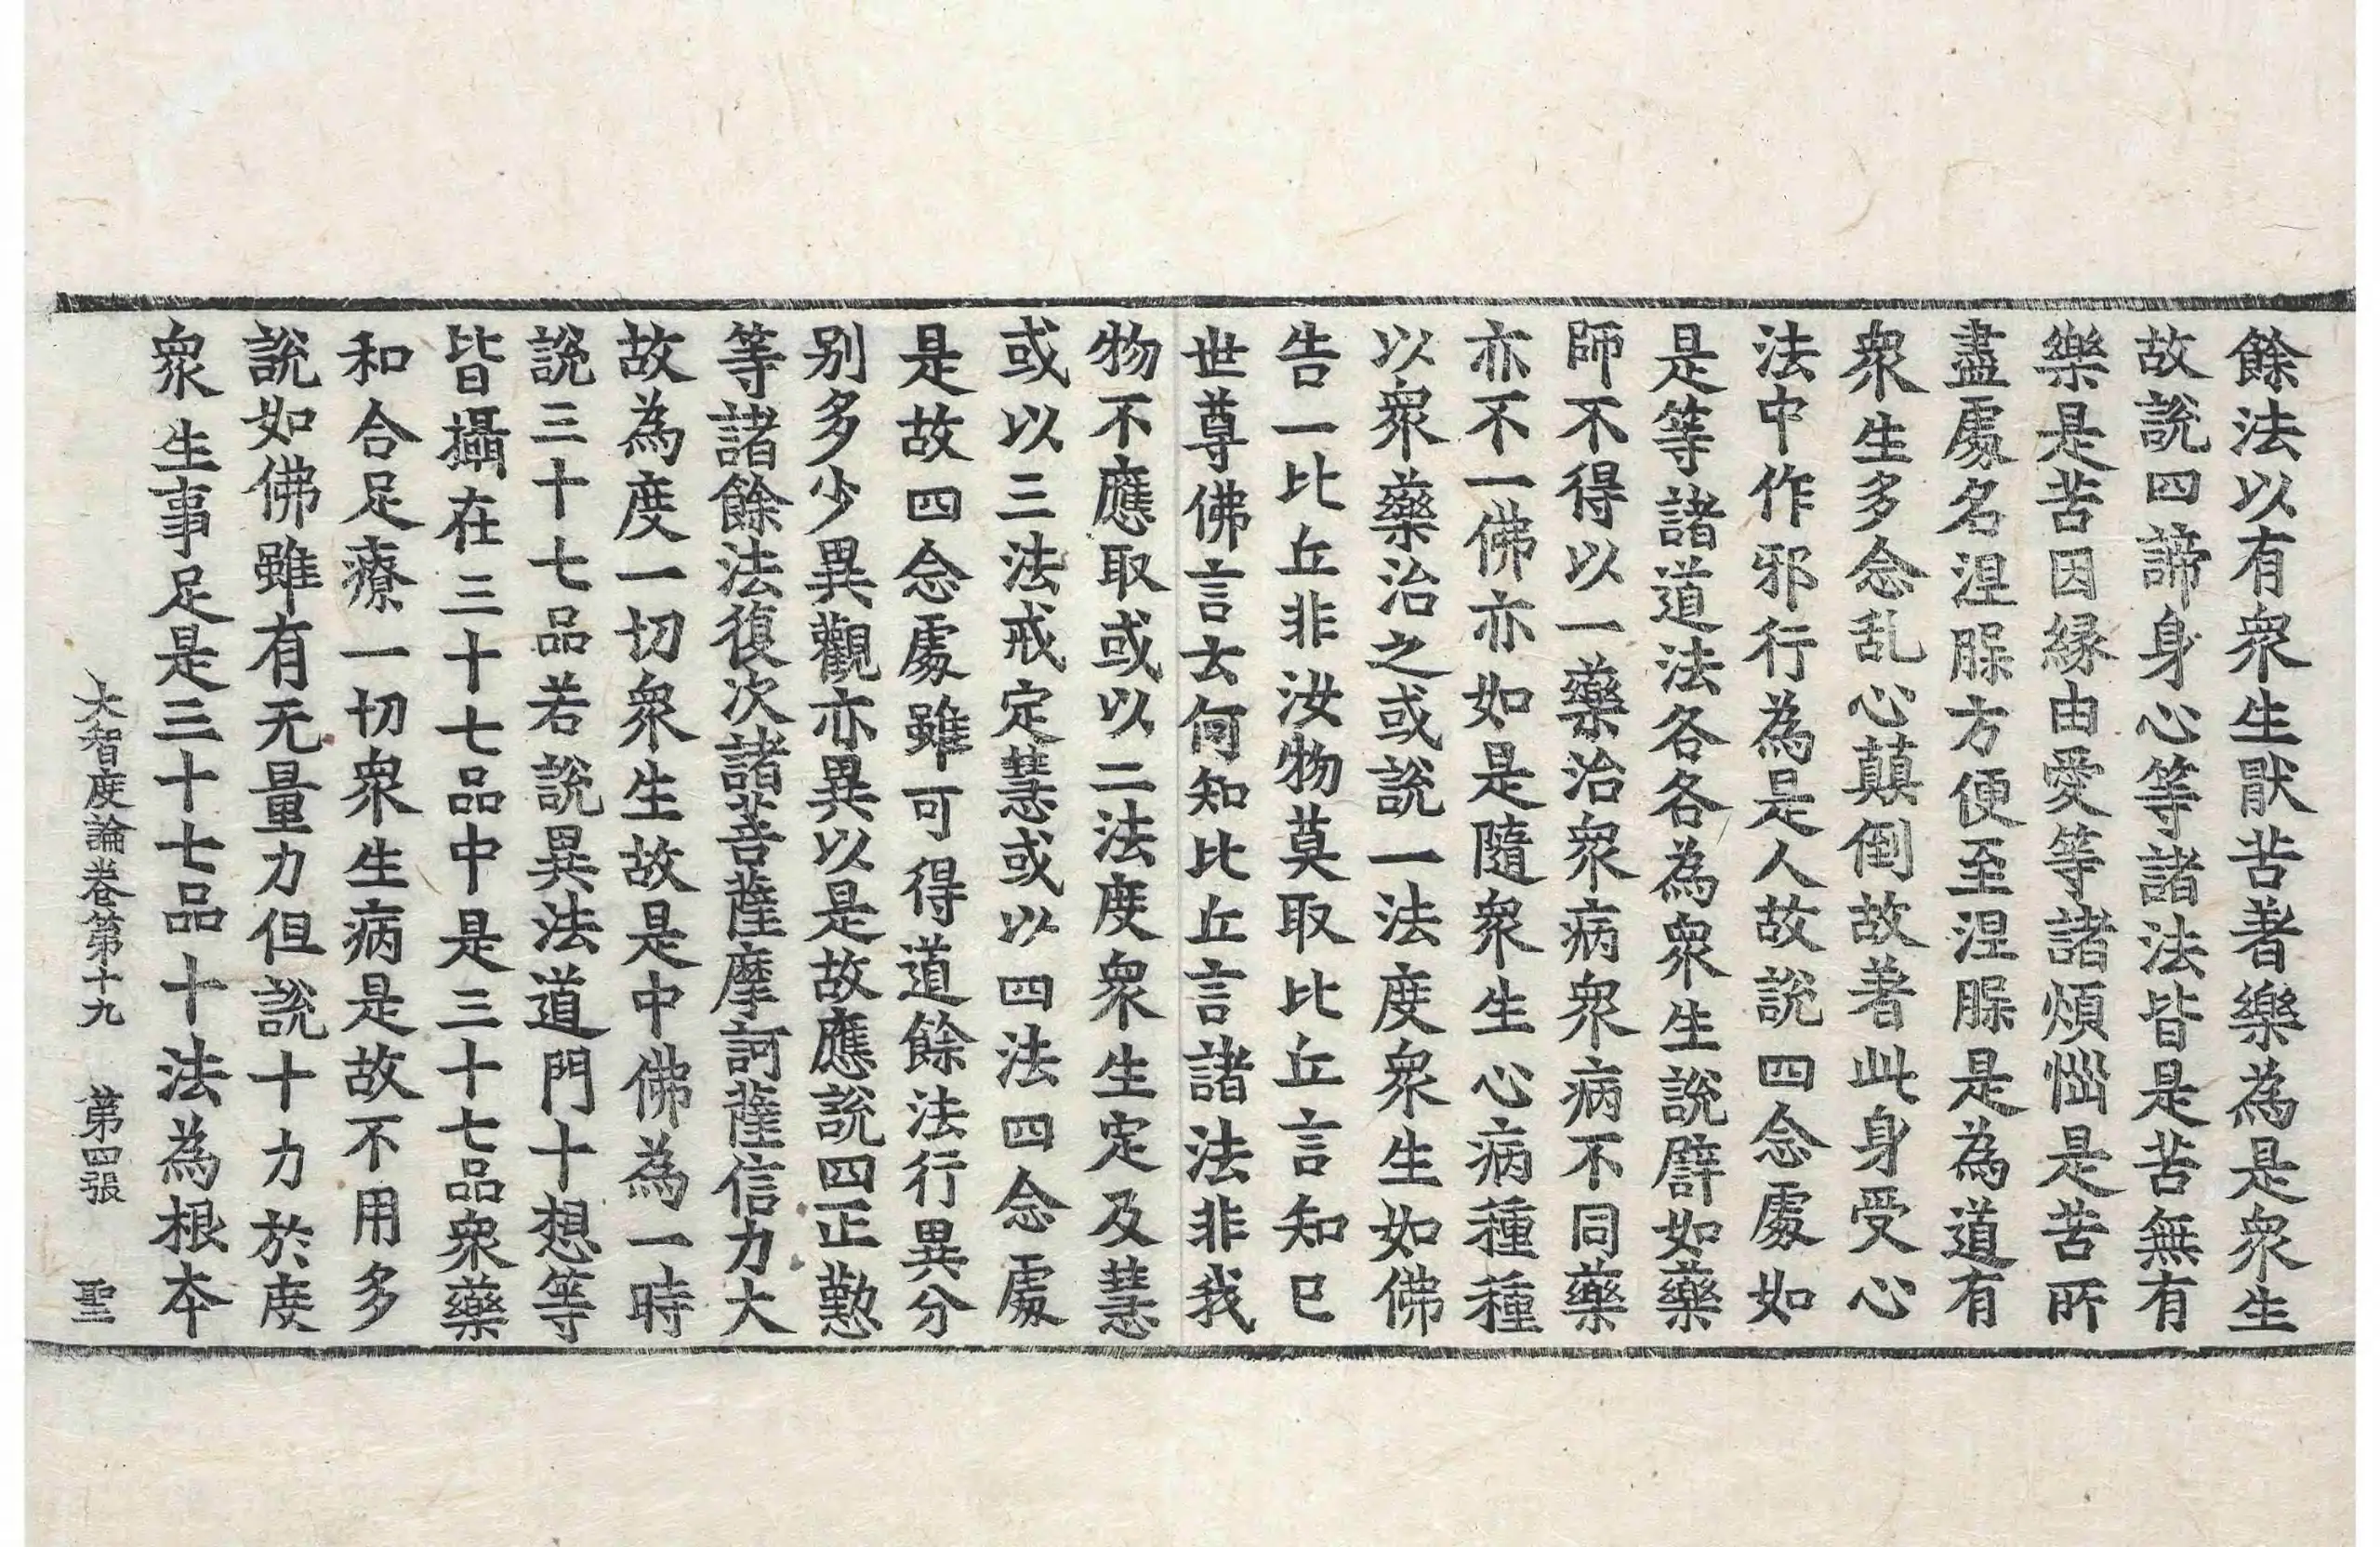 餘法以有衆生猒苦著樂為是衆生
故說四諦身心等諸法皆是苦無有
樂是苦因緣由愛等諸煩惱是苦所
盡處名涅脲方便至涅脲是為道有
衆生多念乱心顛倒故著此身受心
法中作邪行為是人故說四念處如
是等諸道法各各為衆生說譬如藥
師不得以一藥治衆病衆病不同藥
亦不一佛亦如是隨衆生心病種種
以衆藥治之或說一法度衆生如佛
告一比丘非汝物莫取比丘言知已
世尊佛言云何知比丘言諸法非我
物不應取或以二法度衆生定及慧
或以三法戒定慧或以四法四念處
是故四念處雖可得道餘法行異分
别多少異觀亦異以是故應說四正懃
等諸餘法復次諸菩薩摩訶薩信力大
故為度一切衆生故是中佛為一時
說三十七品若說異法道門十想等
皆攝在三十七品中是三十七品衆藥
和合足療一切衆生病是故不用多
說如佛雖有无量力但說十力於度
衆生事足是三十七品十法為根本
大智度論卷第十九 第四張 聖